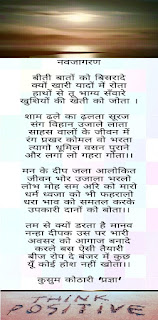 नवजागरण
बीती बातों को बिसरादे
क्यों खारी यादों में रोता
हाथों से तू भाग्य सँवारे
खुशियों की खेती को जोता ।
शाम ढले का ढलता सूरज
संग विहान उजाले लाता
साहस वालों के जीवन में
रंग प्रखर कोमल वो भरता
त्यागो धूमिल वसन पुराने
और लगा लो गहरा गोता।।
मन के दीप जला आलोकित
जीवन भोर उजाला भरलो
लोभ मोह सम अरि को मारो
धर्म ध्वजा को भी फहरालो
धरा भाव को समतल करके
उपकारी दानों को बोता।।
तम से क्यों डरता है मानव
नन्हा दीपक उस पर भारी
अवसर को आगाज बनादे
करले बस ऐसी तैयारी
बीज रोप दे बंजर में कुछ
यूँ कोई होश नहीं खोता।।
कुसुम कोठारी 'प्रज्ञा'
THINK
POSITIVE